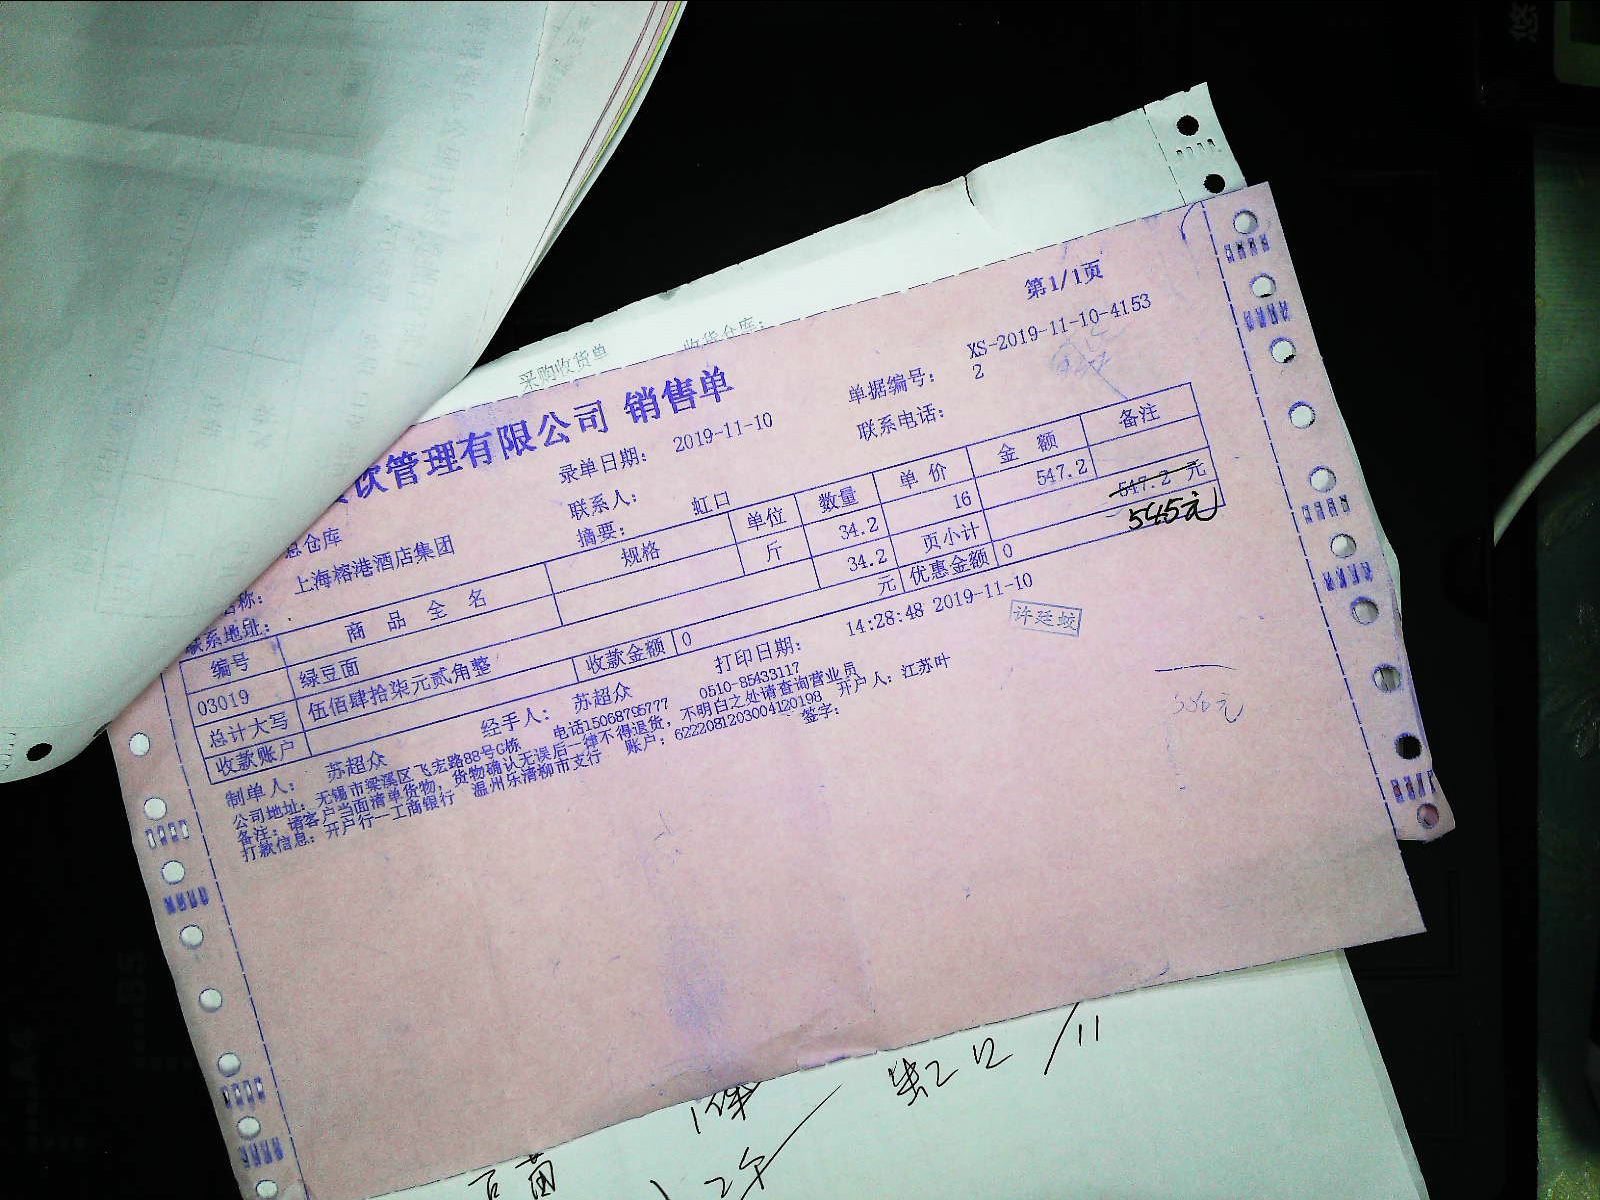 采购收货单 收货仓库:
第1/1页
饮管理有限公司 销售单
XS-2019-11-10-4153
录单日期: 2019-11-10 单据编号: 2
总仓库 联系人: 虹口 联系电话:
名称: 上海榕港酒店集团 摘要:
联系地址:
编号 商品全名 规格 单位 数量 单价 金额 备注
03019 绿豆面 斤 34.2 16 547.2
总计大写 伍佰肆拾柒元贰角整 34.2 页小计 547.2 元
545元
收款账户 收款金额 0 元 优惠金额 0
制单人: 苏超众 经手人: 苏超众 打印日期: 14:28:48 2019-11-10
许廷蛟
公司地址: 无锡市梁溪区飞宏路88号G栋 电话15068795777 0510-85433117
备注: 请客户当面清单货物, 货物确认无误后一律不得退货, 不明白之处请查询营业员
打款信息: 开户行—工商银行 温州乐清柳市支行 账户: 6222081203004120198 开户人: 江苏叶
签字:
虹口 11